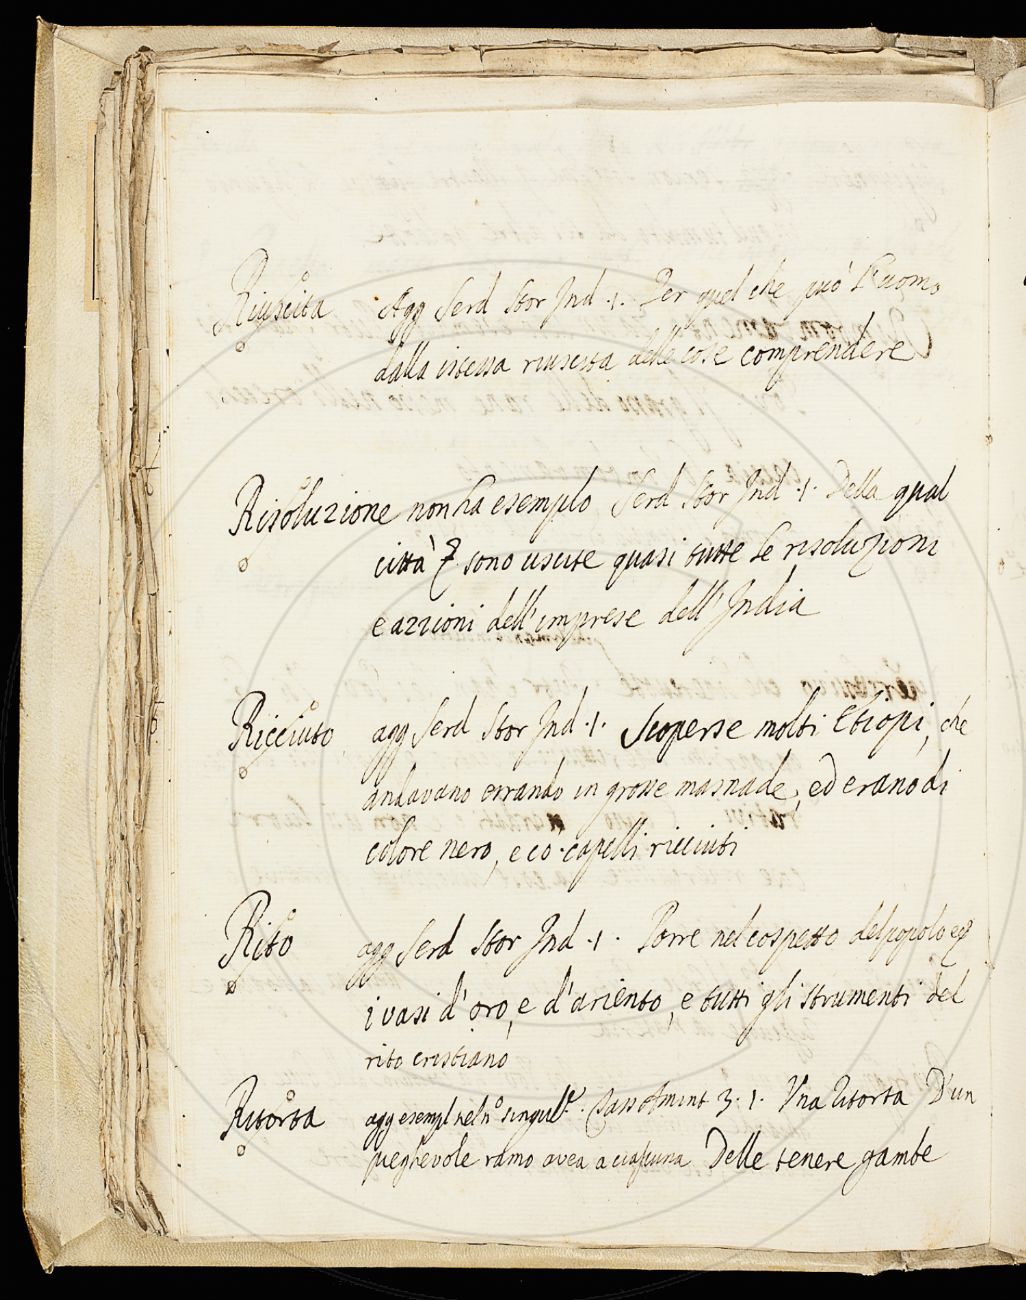 Riuscita Agg Serd Stor Ind .1. Per quel che può l'huomo
dalla istessa riuscita delle cose comprendere
Risoluzione non ha esemplo Serd Stor Ind .1. Della qual
città sono uscite quasi tutte le risoluzioni
e azzioni dell'imprese dell'India
Ricciuto agg Serd Stor Ind .1. Scoperse molti Etiopi, che
andavano errando in grosse masnade, ed erano di
colore nero, e co' capelli ricciuti
Rito agg Serd Stor Ind .1. Porre nel cospetto del popolo
i vasi d'oro, e d'ariento, e tutti gli strumenti del
rito cristiano
Ritorta agg esempl nel nº singul.e. 3.1. Una ritorta D'un
pieghevole ramo avea a ciascuna Delle tenere gambe